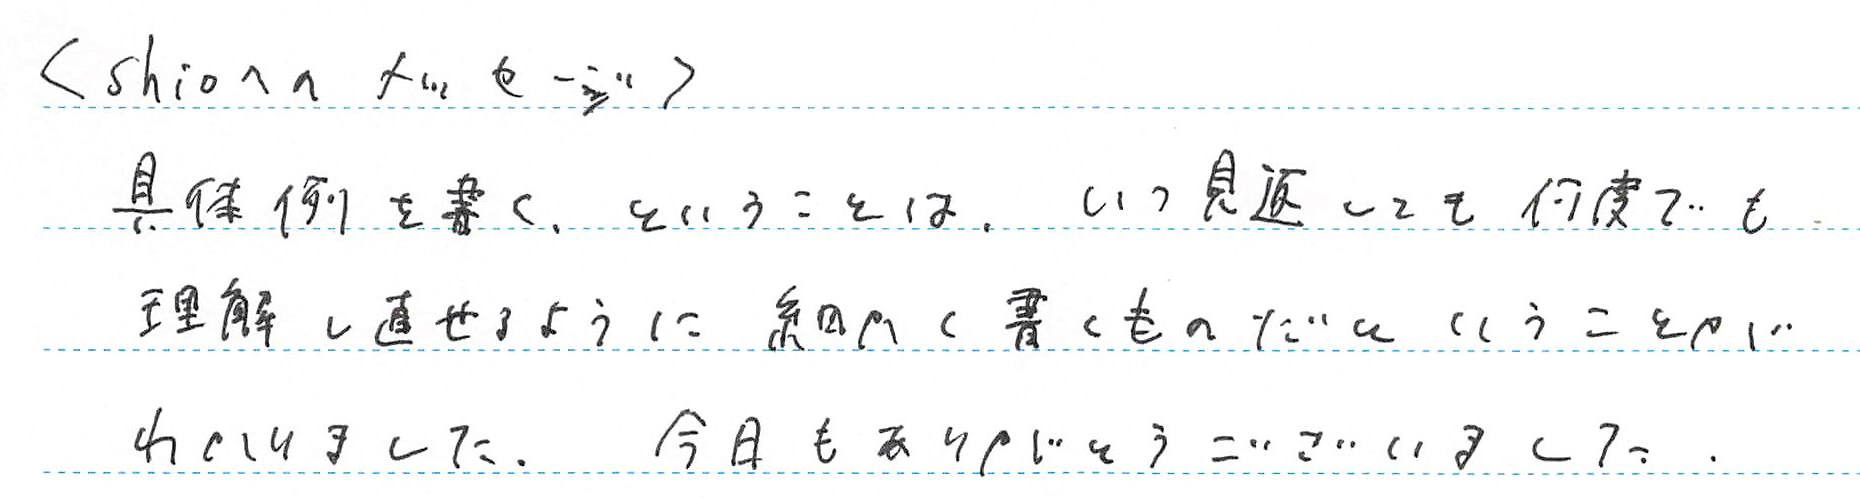 <shioへのメッセージ>
具体例を書く、ということは、いつ見返しても何度でも
理解し直せるように細かく書くものだということが
わかりました。今日もありがとうございました。